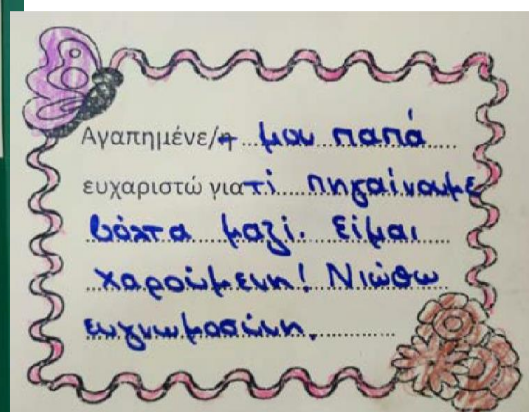 Αγαπημένε/η μου παπά
ευχαριστώ γιατί πηγαίνουμε
βόλτα μαζί. Είμαι
χαρούμενη! Νιώθω
ευγνωμοσύνη.